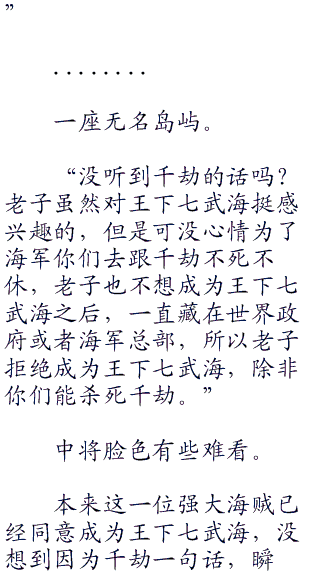 ”
........
一座无名岛屿。
“没听到千劫的话吗？
老子虽然对王下七武海挺感
兴趣的，但是可没心情为了
海军你们去跟千劫不死不
休，老子也不想成为王下七
武海之后，一直藏在世界政
府或者海军总部，所以老子
拒绝成为王下七武海，除非
你们能杀死千劫。”
中将脸色有些难看。
本来这一位强大海贼已
经同意成为王下七武海，没
想到因为千劫一句话，瞬